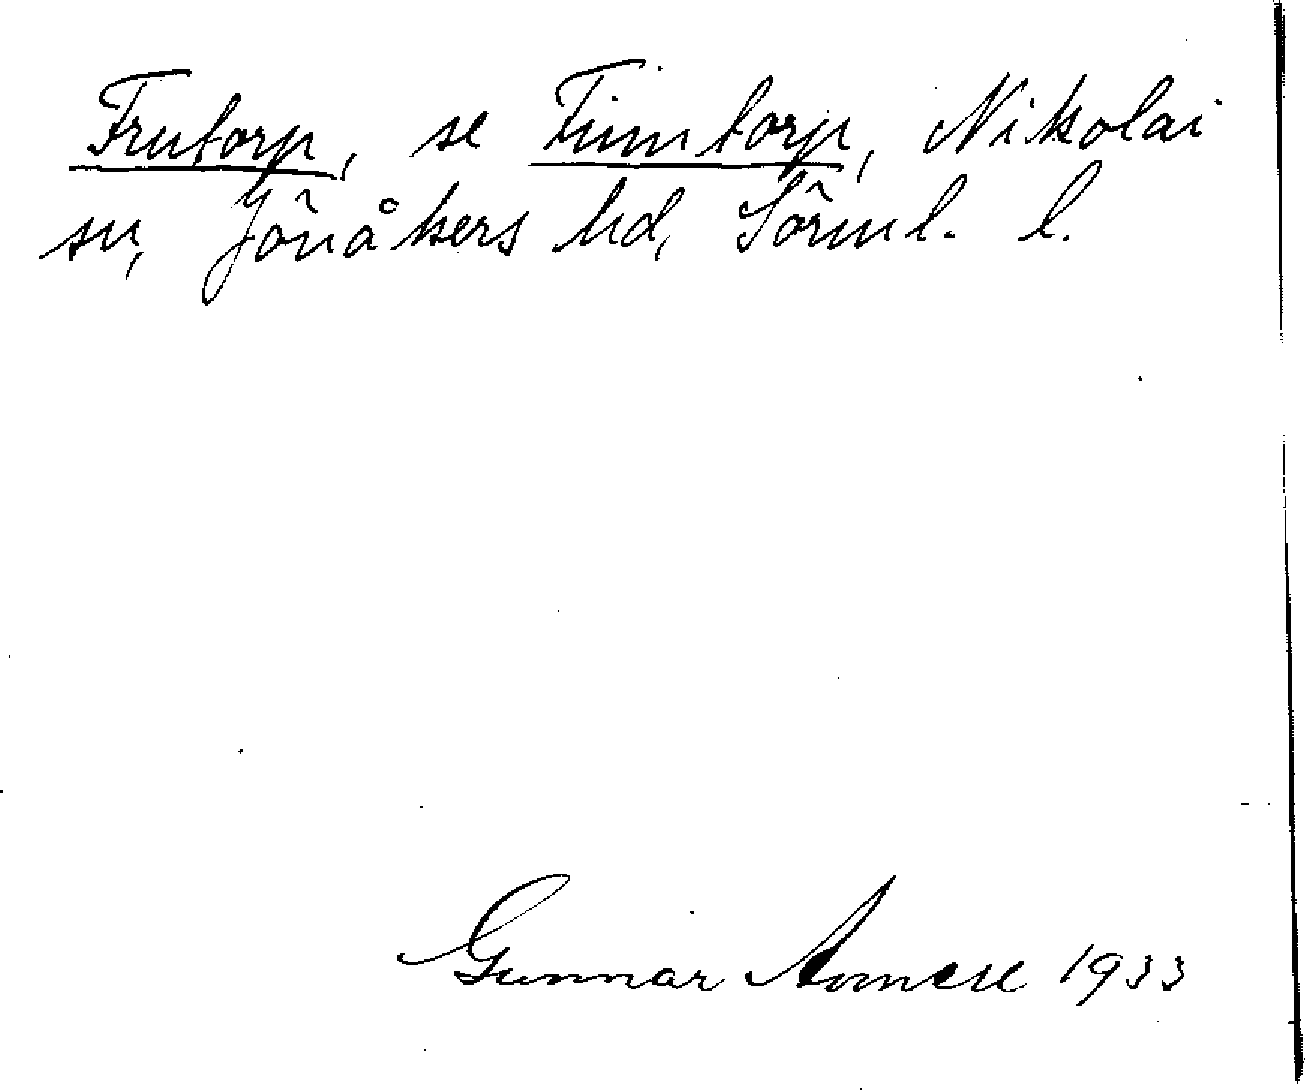 Frutorp, se Fimtorp, Nikolai
sn, Jönåkers hd, Sörml. l.
Gunnar 1933